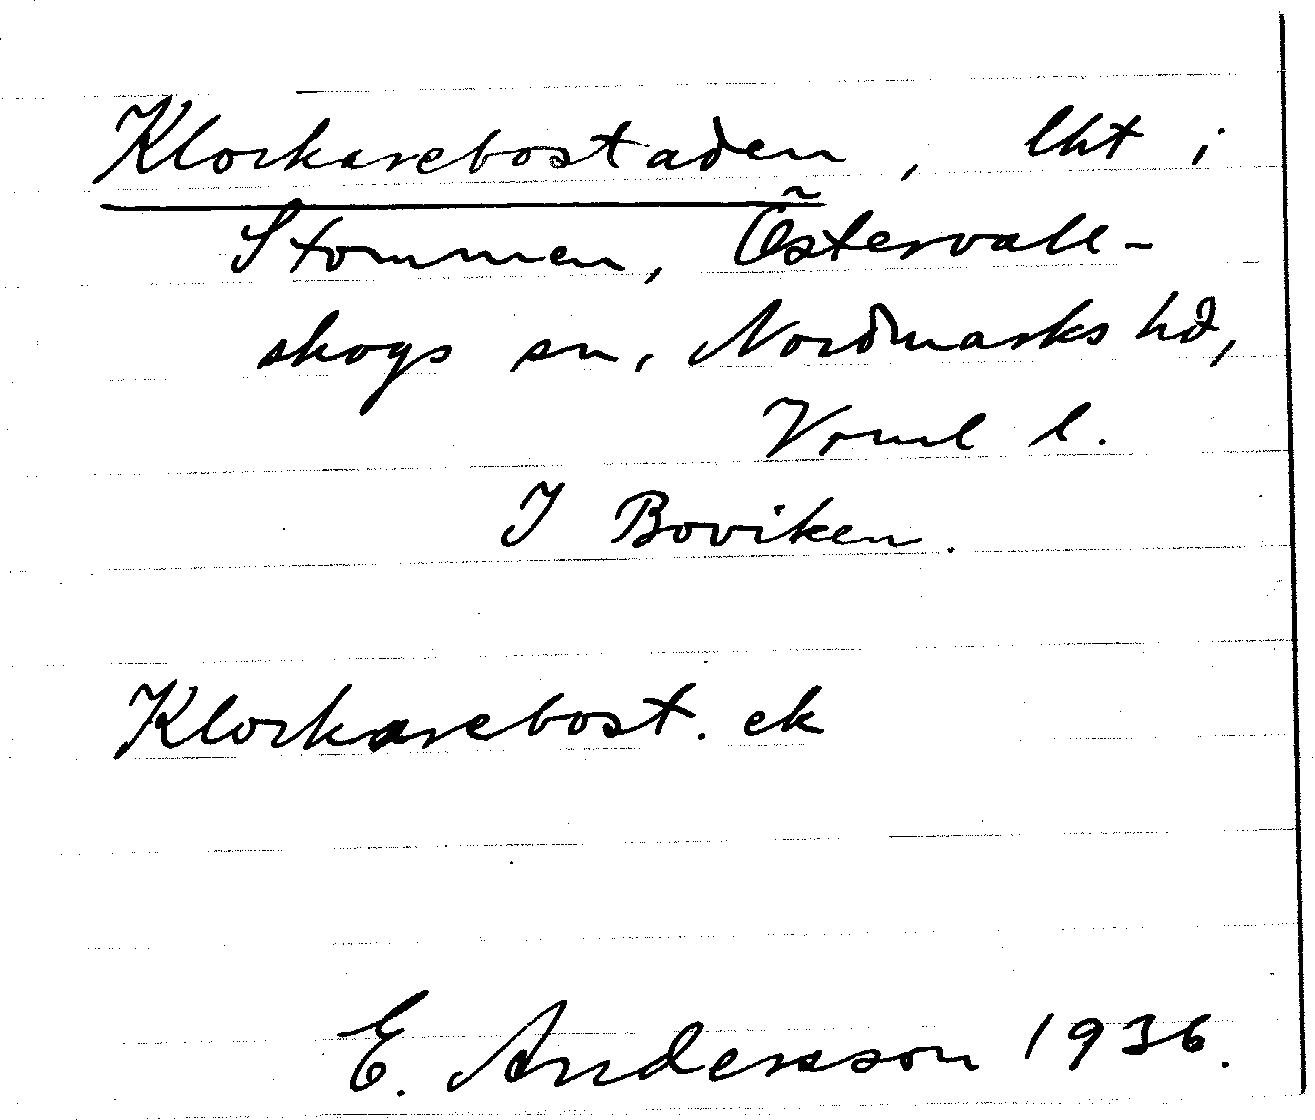 Klockarebostaden, lht i
Stommen, Östervall-
skogs sn, Nordmarks hd,
Vrml l.
I Boviken.
Klockarebost. ek
E. Andersson 1936.